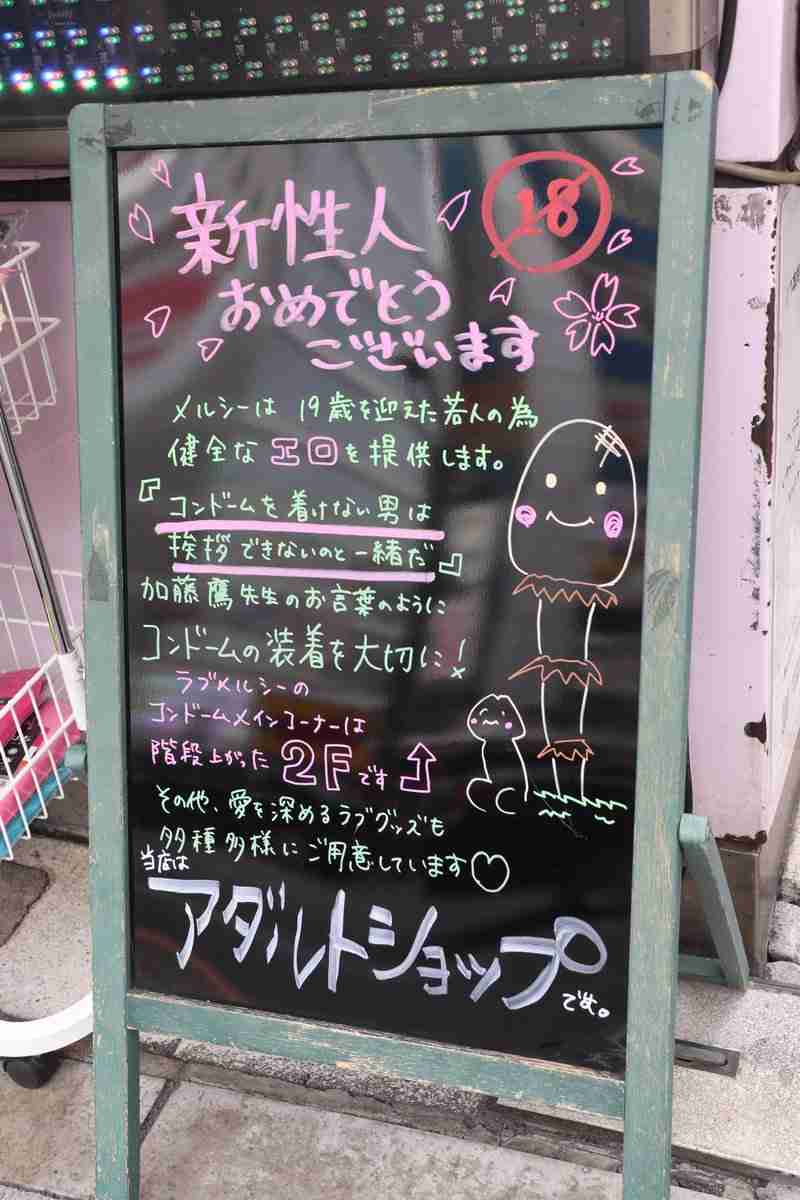 新性人
18
おめでとう
ございます
メルシーは 19歳を迎えた若人の為
健全なエロを提供します。
『コンドームを着けない男は
挨拶できないのと一緒だ』
加藤鷹先生のお言葉のように
コンドームの装着を大切に!
ラブメルシーの
コンドームメインコーナーは
階段上がった2Fです
その他、愛を深めるラブグッズも
多種多様にご用意しています♡
当店は
アダルトショップ
です。